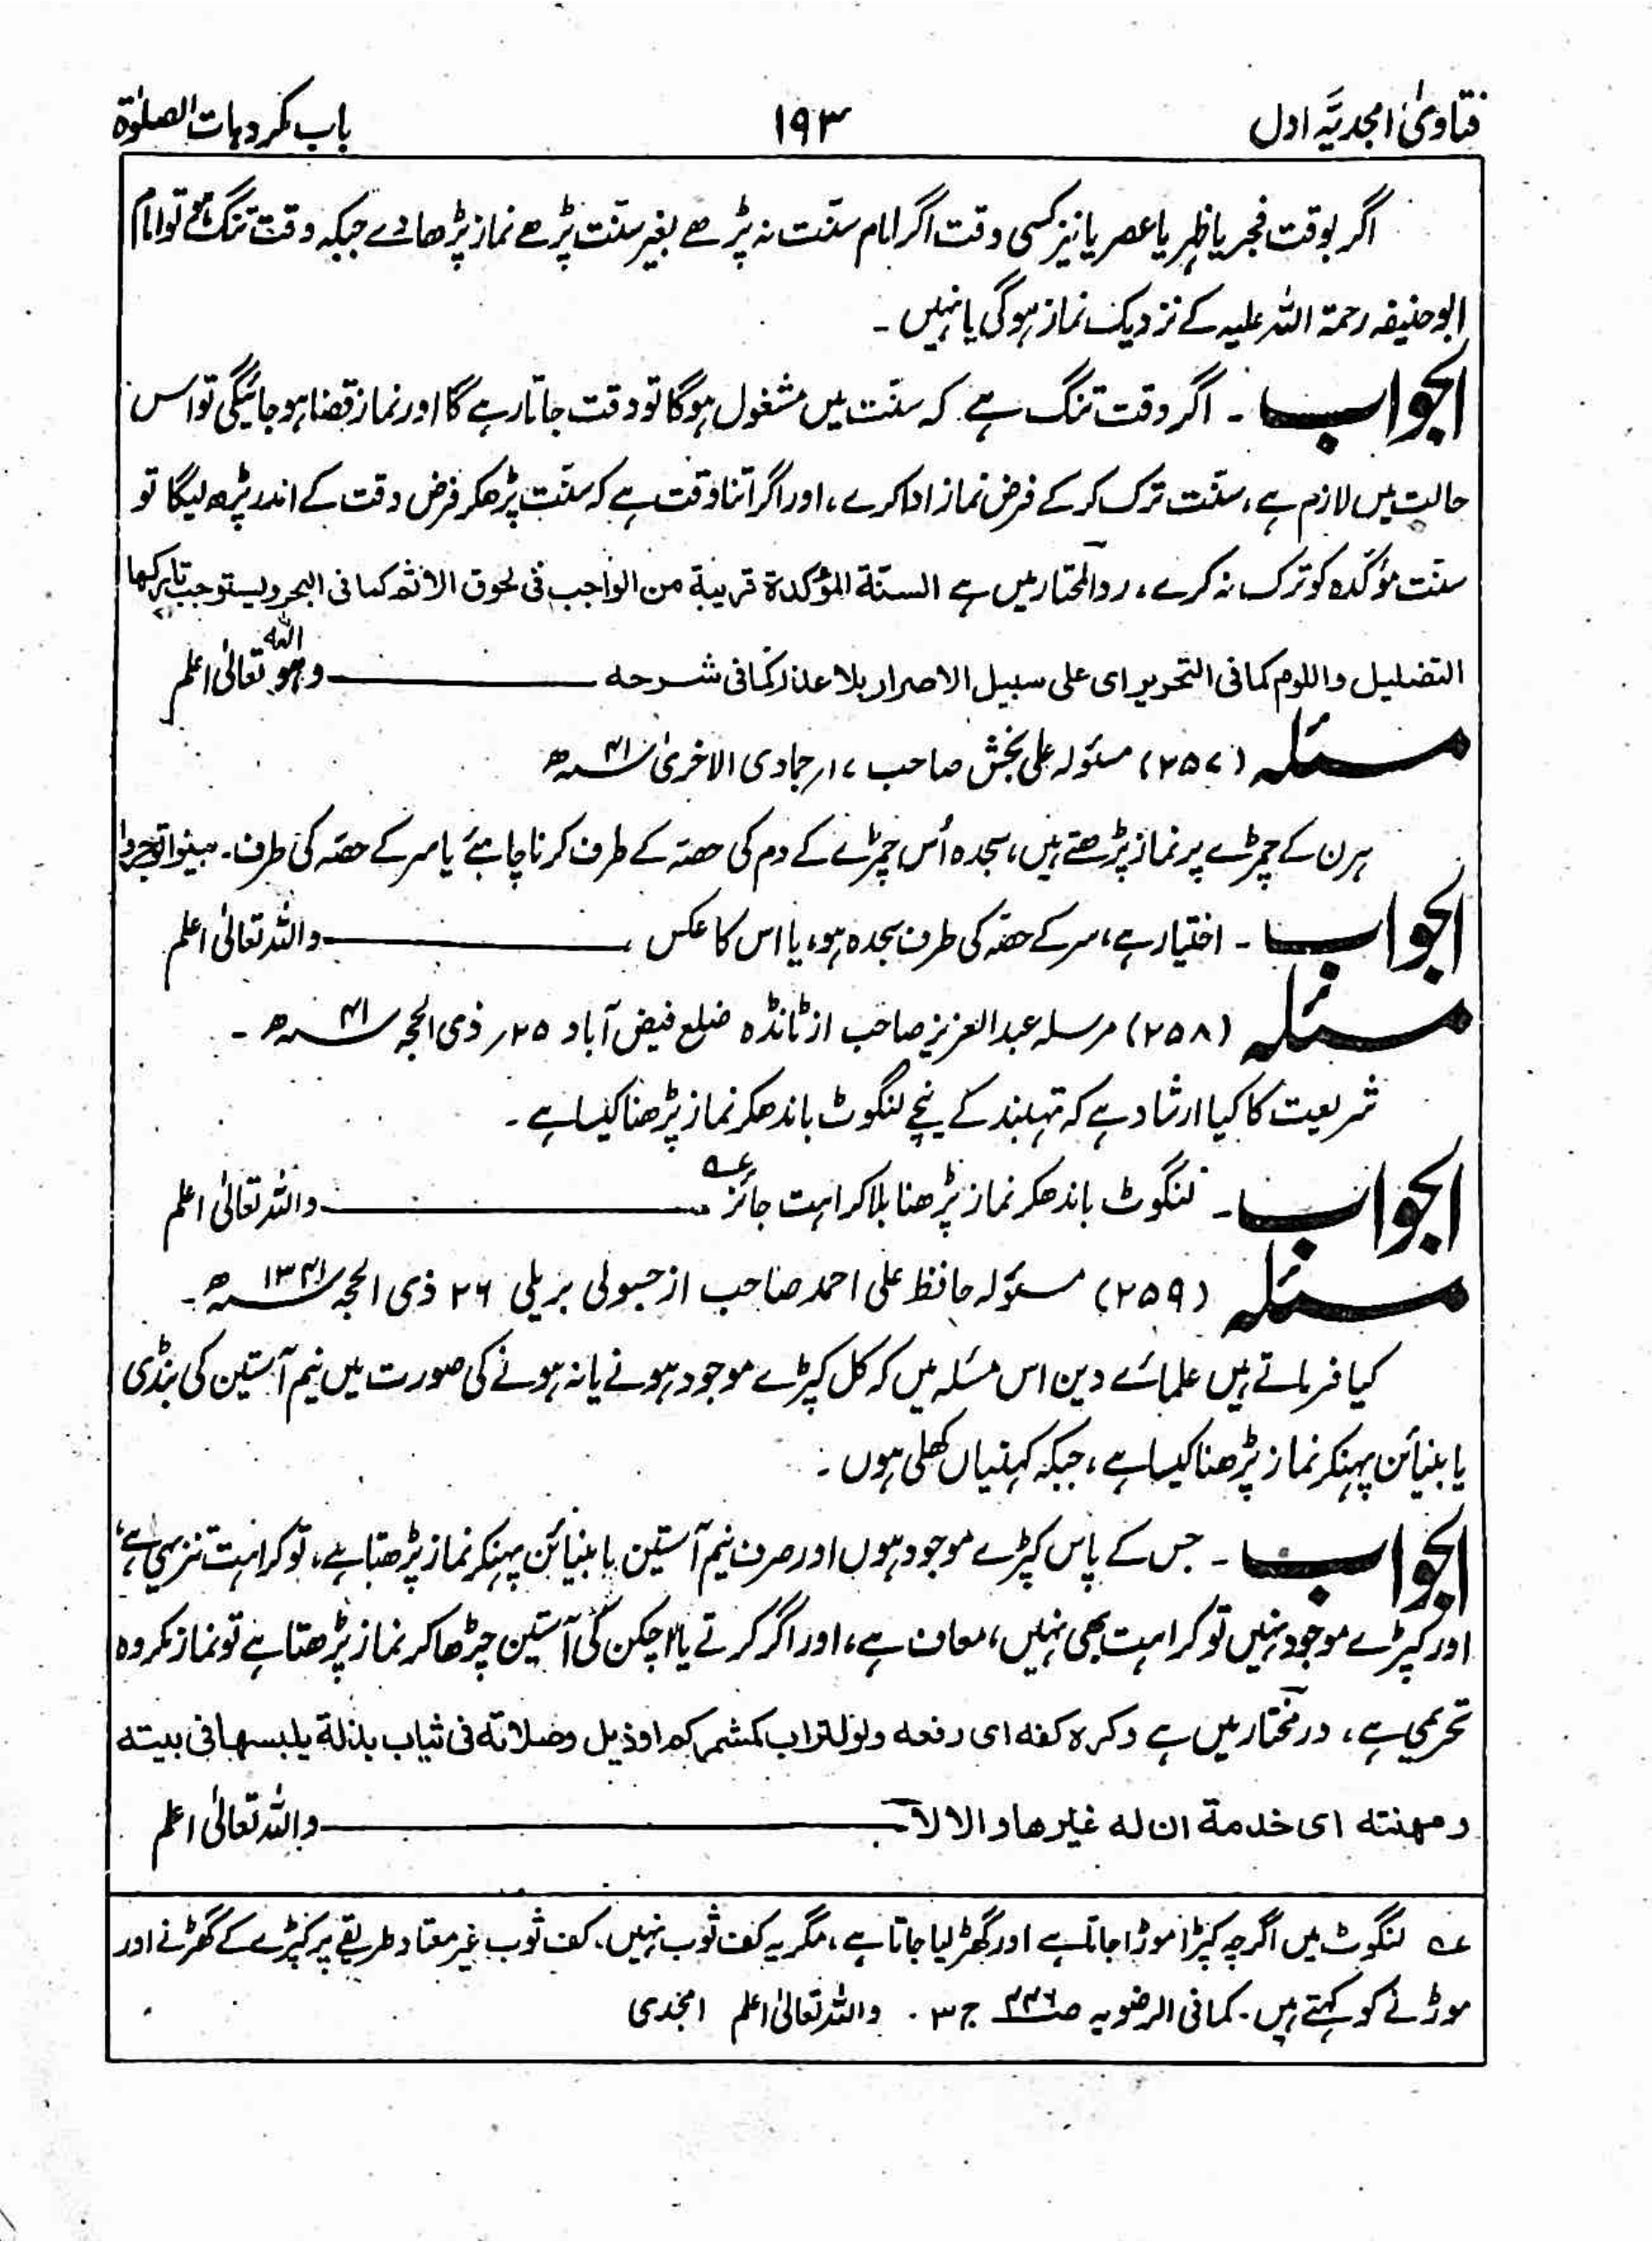 فتاویٰ امجدیَّہ اول
۱۹۳
باب مکروہات الصلوٰۃ
اگر بوقت فجر یا ظہر یا عصر یا نیز کسی وقت اگر امام سنّت نہ پڑھے بغیر سنّت پڑھے نماز پڑھا دے جبکہ وقت تنگ ہے تو امام
ابوحنیفہ رحمۃ اللہ علیہ کے نزدیک نماز ہوگی یا نہیں ۔
الجواب ۔ اگر وقت تنگ ہے کہ سنّت میں مشغول ہوگا تو وقت جاتا رہے گا اور نماز قضا ہو جائیگی تو اس
حالت میں لازم ہے، سنّت ترک کرکے فرض نماز ادا کرے، اور اگر اتنا وقت ہے کہ سنّت پڑھکر فرض وقت کے اندر پڑھ لیگا تو
سنّت مؤکدہ کو ترک نہ کرے، ردالمحتار میں ہے السنّة المؤکدة قریبة من الواجب فی لحوق الاثم کما فی البحر ویستوجب تارکها
التضلیل واللوم کما فی التحریر ای علی سبیل الاصرار بلا عذر کما فی شرحه ــــــ وھو اللہ تعالیٰ اعلم
مسئلہ (۲۵۷) مسئولہ علی بخش صاحب ۱۷؍ جمادی الاخریٰ ۴۱ھ
ہرن کے چمڑے پر نماز پڑھتے ہیں، سجدہ اُس چمڑے کے دم کی حصہ کے طرف کرنا چاہئے یا سر کے حصّہ کی طرف ۔ بینوا توجروا
الجواب ۔ اختیار ہے، سر کے حصّہ کی طرف سجدہ ہو، یا اس کا عکس، ــــــ واللہ تعالیٰ اعلم
مسئلہ (۲۵۸) مرسلہ عبدالعزیز صاحب از ٹانڈہ ضلع فیض آباد ۲۵؍ ذی الحجہ ۴۱ھ ۔
شریعت کا کیا ارشاد ہے کہ تہبند کے نیچے لنگوٹ باندھکر نماز پڑھنا کیسا ہے ۔
الجواب ۔ لنگوٹ باندھکر نماز پڑھنا بلا کراہت جائز عہ ۔ ــــــ واللہ تعالیٰ اعلم
مسئلہ (۲۵۹) مسئولہ حافظ علی احمد صاحب از جسولی بریلی ۲۶ ذی الحجہ ۱۳۴۱ھ ۔
کیا فرماتے ہیں علمائے دین اس مسئلہ میں کہ کل کپڑے موجود ہونے یا نہ ہونے کی صورت میں نیم آستین کی بنڈی
یا بنیائن پہنکر نماز پڑھنا کیسا ہے، جبکہ کہنیاں کھلی ہوں ۔
الجواب ۔ جس کے پاس کپڑے موجود ہوں اور صرف نیم آستین یا بنیائن پہنکر نماز پڑھتا ہے، تو کراہت تنزیہی ہے،
اور کپڑے موجود نہیں تو کراہت بھی نہیں، معاف ہے، اور اگر کرتے یا اچکن کی آستین چڑھا کر نماز پڑھتا ہے تو نماز مکروہ
تحریمی ہے، درمختار میں ہے وکرہ کفه ای رفعه ولو لتراب کمشمر کم او ذیل وصلاته فی ثیاب بذلة یلبسها فی بیته
ومهنته ای خدمة ان له غیرها والا لا ــــــ واللہ تعالیٰ اعلم
عہ لنگوٹ میں اگرچہ کپڑا موڑا جاتا ہے اور گھڑ لیا جاتا ہے، مگر یہ کف ثوب نہیں، کف ثوب غیر معتاد طریقے پر کپڑے کے گھڑنے اور
موڑنے کو کہتے ہیں ۔ کما فی الرضویہ ج ۳ ۔ واللہ تعالیٰ اعلم امجدی